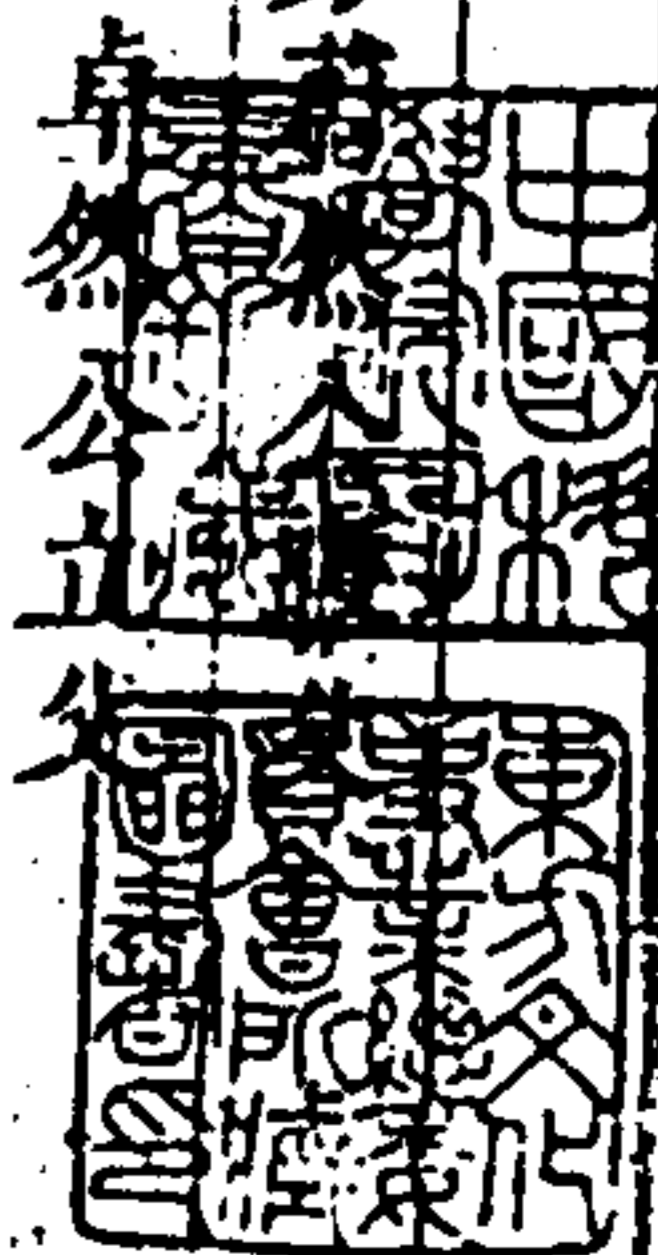 中國科
學院圖
書館藏
東方文化
事業總委
員會所藏
圖書印
卓然公立